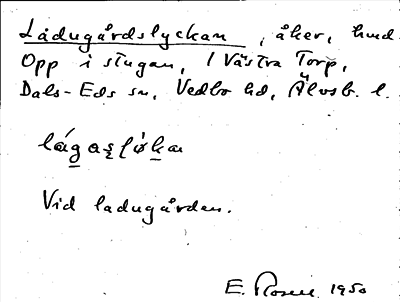 Ladugårdslyckan, åker, hmd.
Opp i stugan, 1 Västra Torp,
Dals-Eds sn, Vedbo hd, Älvsb. l.
Vid ladugården.
E. Rosell 1950